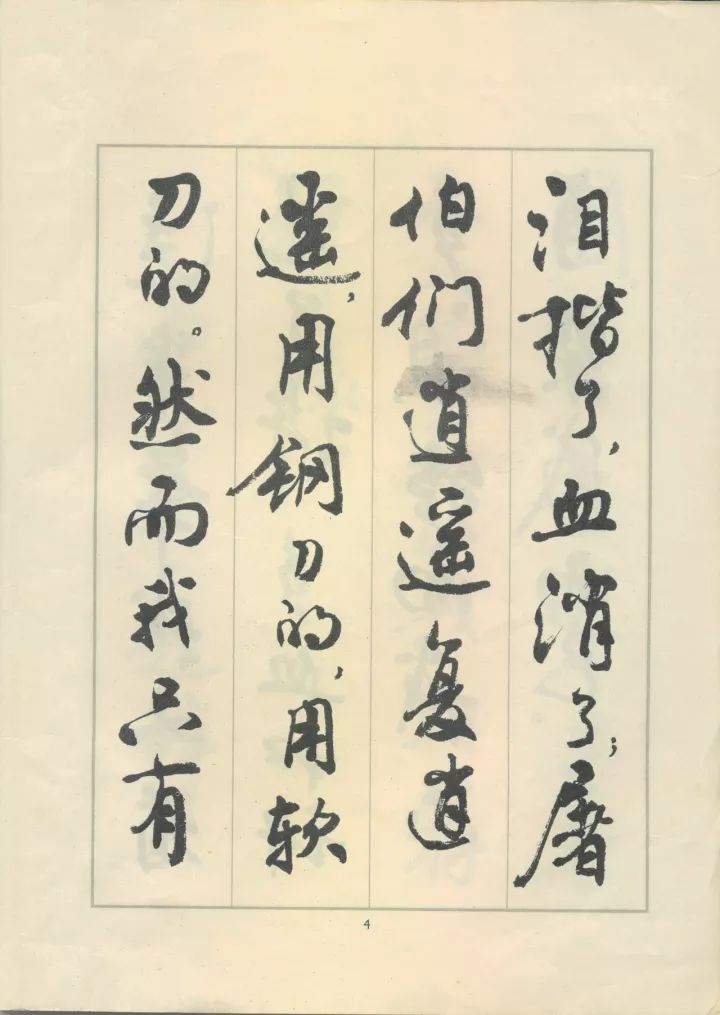 泪揩了，血消了；屠
伯们逍遥复逍
遥，用钢刀的，用软
刀的。然而我只有
4